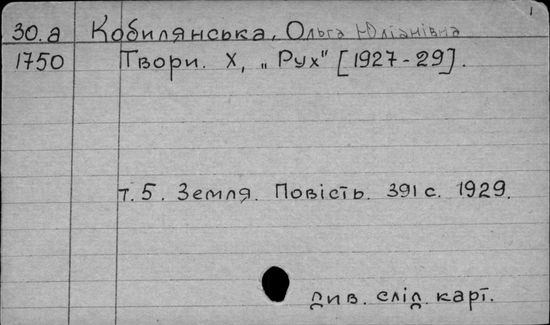 1
30.a Кобилянська, Ольга Юліанівна
1750 Твори. Х, „Рух" [1927-29].
т. 5. Земля. Повість. 391 с. 1929.
див. слід. карт.